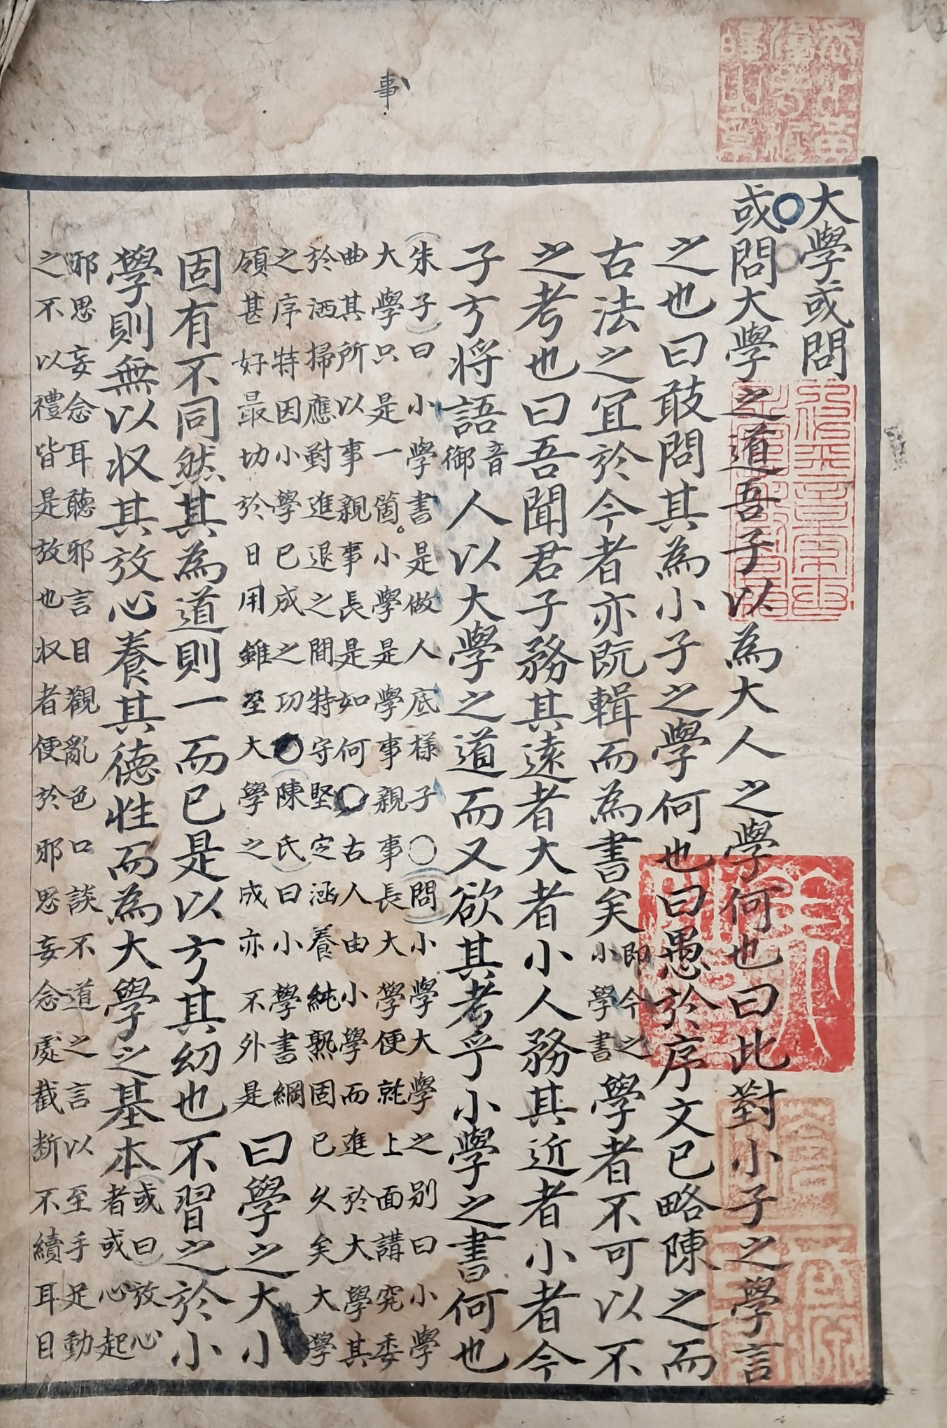 事
大學或問
或問大學之道吾子以為大人之學何也曰此對小子之學言
之也曰敢問其為小子之學何也曰愚於序文已略陳之而
古法之宜於今者亦既輯而為書矣即今之小學書學者不可以不
之考也曰吾聞君子務其遠者大者小人務其近者小者今
子方將語音御人以大學之道而又欲其考乎小學之書何也
朱子曰小學書是做人底樣子○問小學大學之別曰小學
大學只是一箇小學是學事親事長大學便就上面講究委
曲其所以事親事長是如何○古人由小學而進於大學其
於洒掃應對進退之間特守堅定涵養純熟固已久矣大學
之序特因小學已成之功○陳氏曰小學書綱
領甚好最切於日用雖至大學之成亦不外是
曰學之大小
固有不同然其為道則一而已是以方其幼也不習之於小
學則無以收其放心養其德性而為大學之基本或曰放心
者或心起
邪思妄念耳聽邪言目觀亂色口談不道之言以至手足動
之不以禮皆是放也收者便於邪思妄念處截斷不續耳目